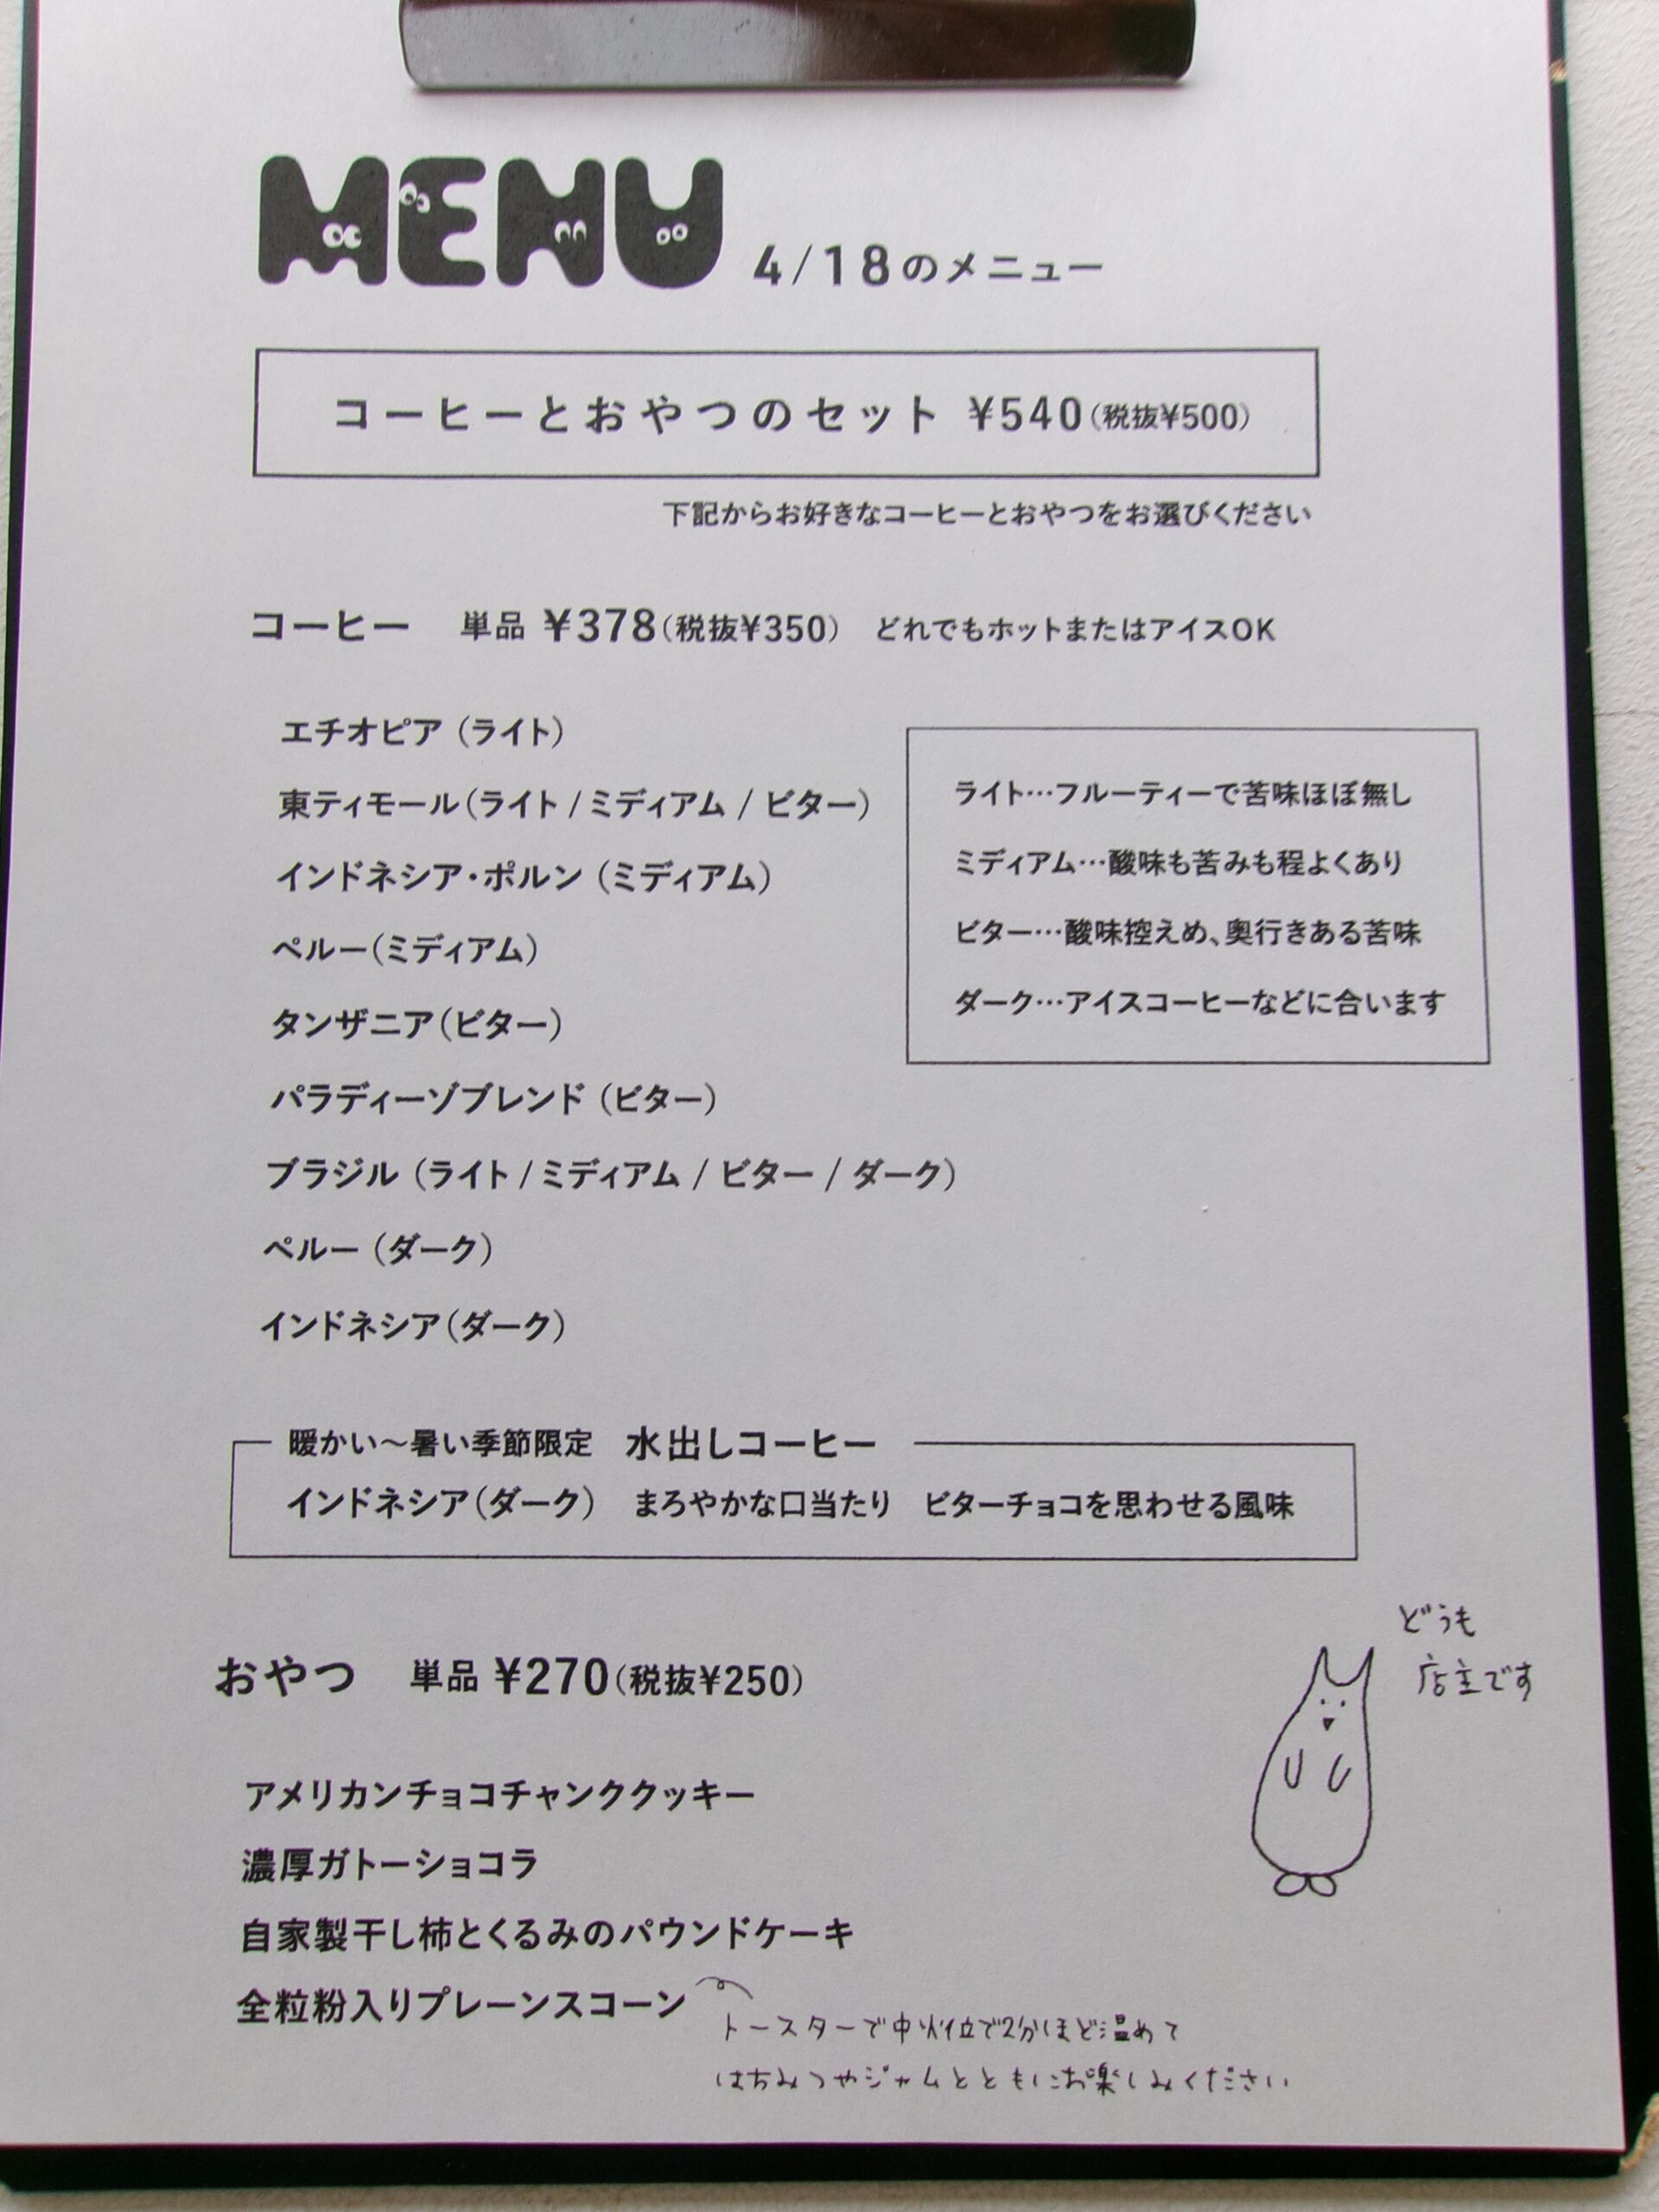 MENU 4/18のメニュー
コーヒーとおやつのセット ¥540(税抜¥500)
下記からお好きなコーヒーとおやつをお選びください
コーヒー 単品 ¥378(税抜¥350) どれでもホットまたはアイスOK
エチオピア(ライト)
東ティモール(ライト / ミディアム / ビター)
インドネシア・ポルン(ミディアム)
ペルー(ミディアム)
タンザニア(ビター)
パラディーゾブレンド(ビター)
ブラジル(ライト / ミディアム / ビター / ダーク)
ペルー(ダーク)
インドネシア(ダーク)
ライト…フルーティーで苦味ほぼ無し
ミディアム…酸味も苦みも程よくあり
ビター…酸味控えめ、奥行きある苦味
ダーク…アイスコーヒーなどに合います
暖かい〜暑い季節限定 水出しコーヒー
インドネシア(ダーク) まろやかな口当たり ビターチョコを思わせる風味
どうも
店主です
おやつ 単品 ¥270(税抜¥250)
アメリカンチョコチャンククッキー
濃厚ガトーショコラ
自家製干し柿とくるみのパウンドケーキ
全粒粉入りプレーンスコーン
トースターで中火位で2分ほど温めて
はちみつやジャムとともにお楽しみください